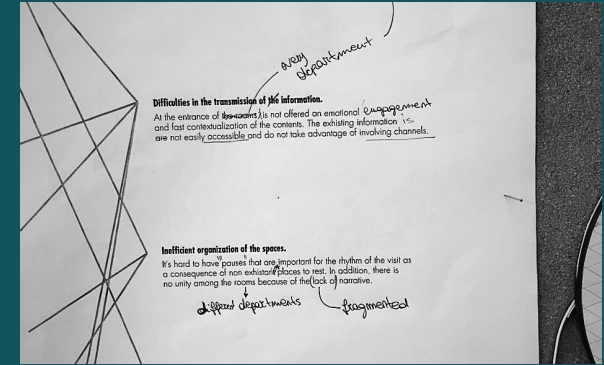 every
department
Difficulties in the transmission of the information.
At the entrance of the rooms is not offered an emotional engagement
and fast contextualization of the contents. The exhisting information is
are not easily accessible and do not take advantage of involving channels.
Inefficient organization of the spaces.
It's hard to have "pauses" that are important for the rhythm of the visit as
a consequence of non exhistant places to rest. In addition, there is
no unity among the rooms because of the (lack of) narrative.
different departments
fragmented